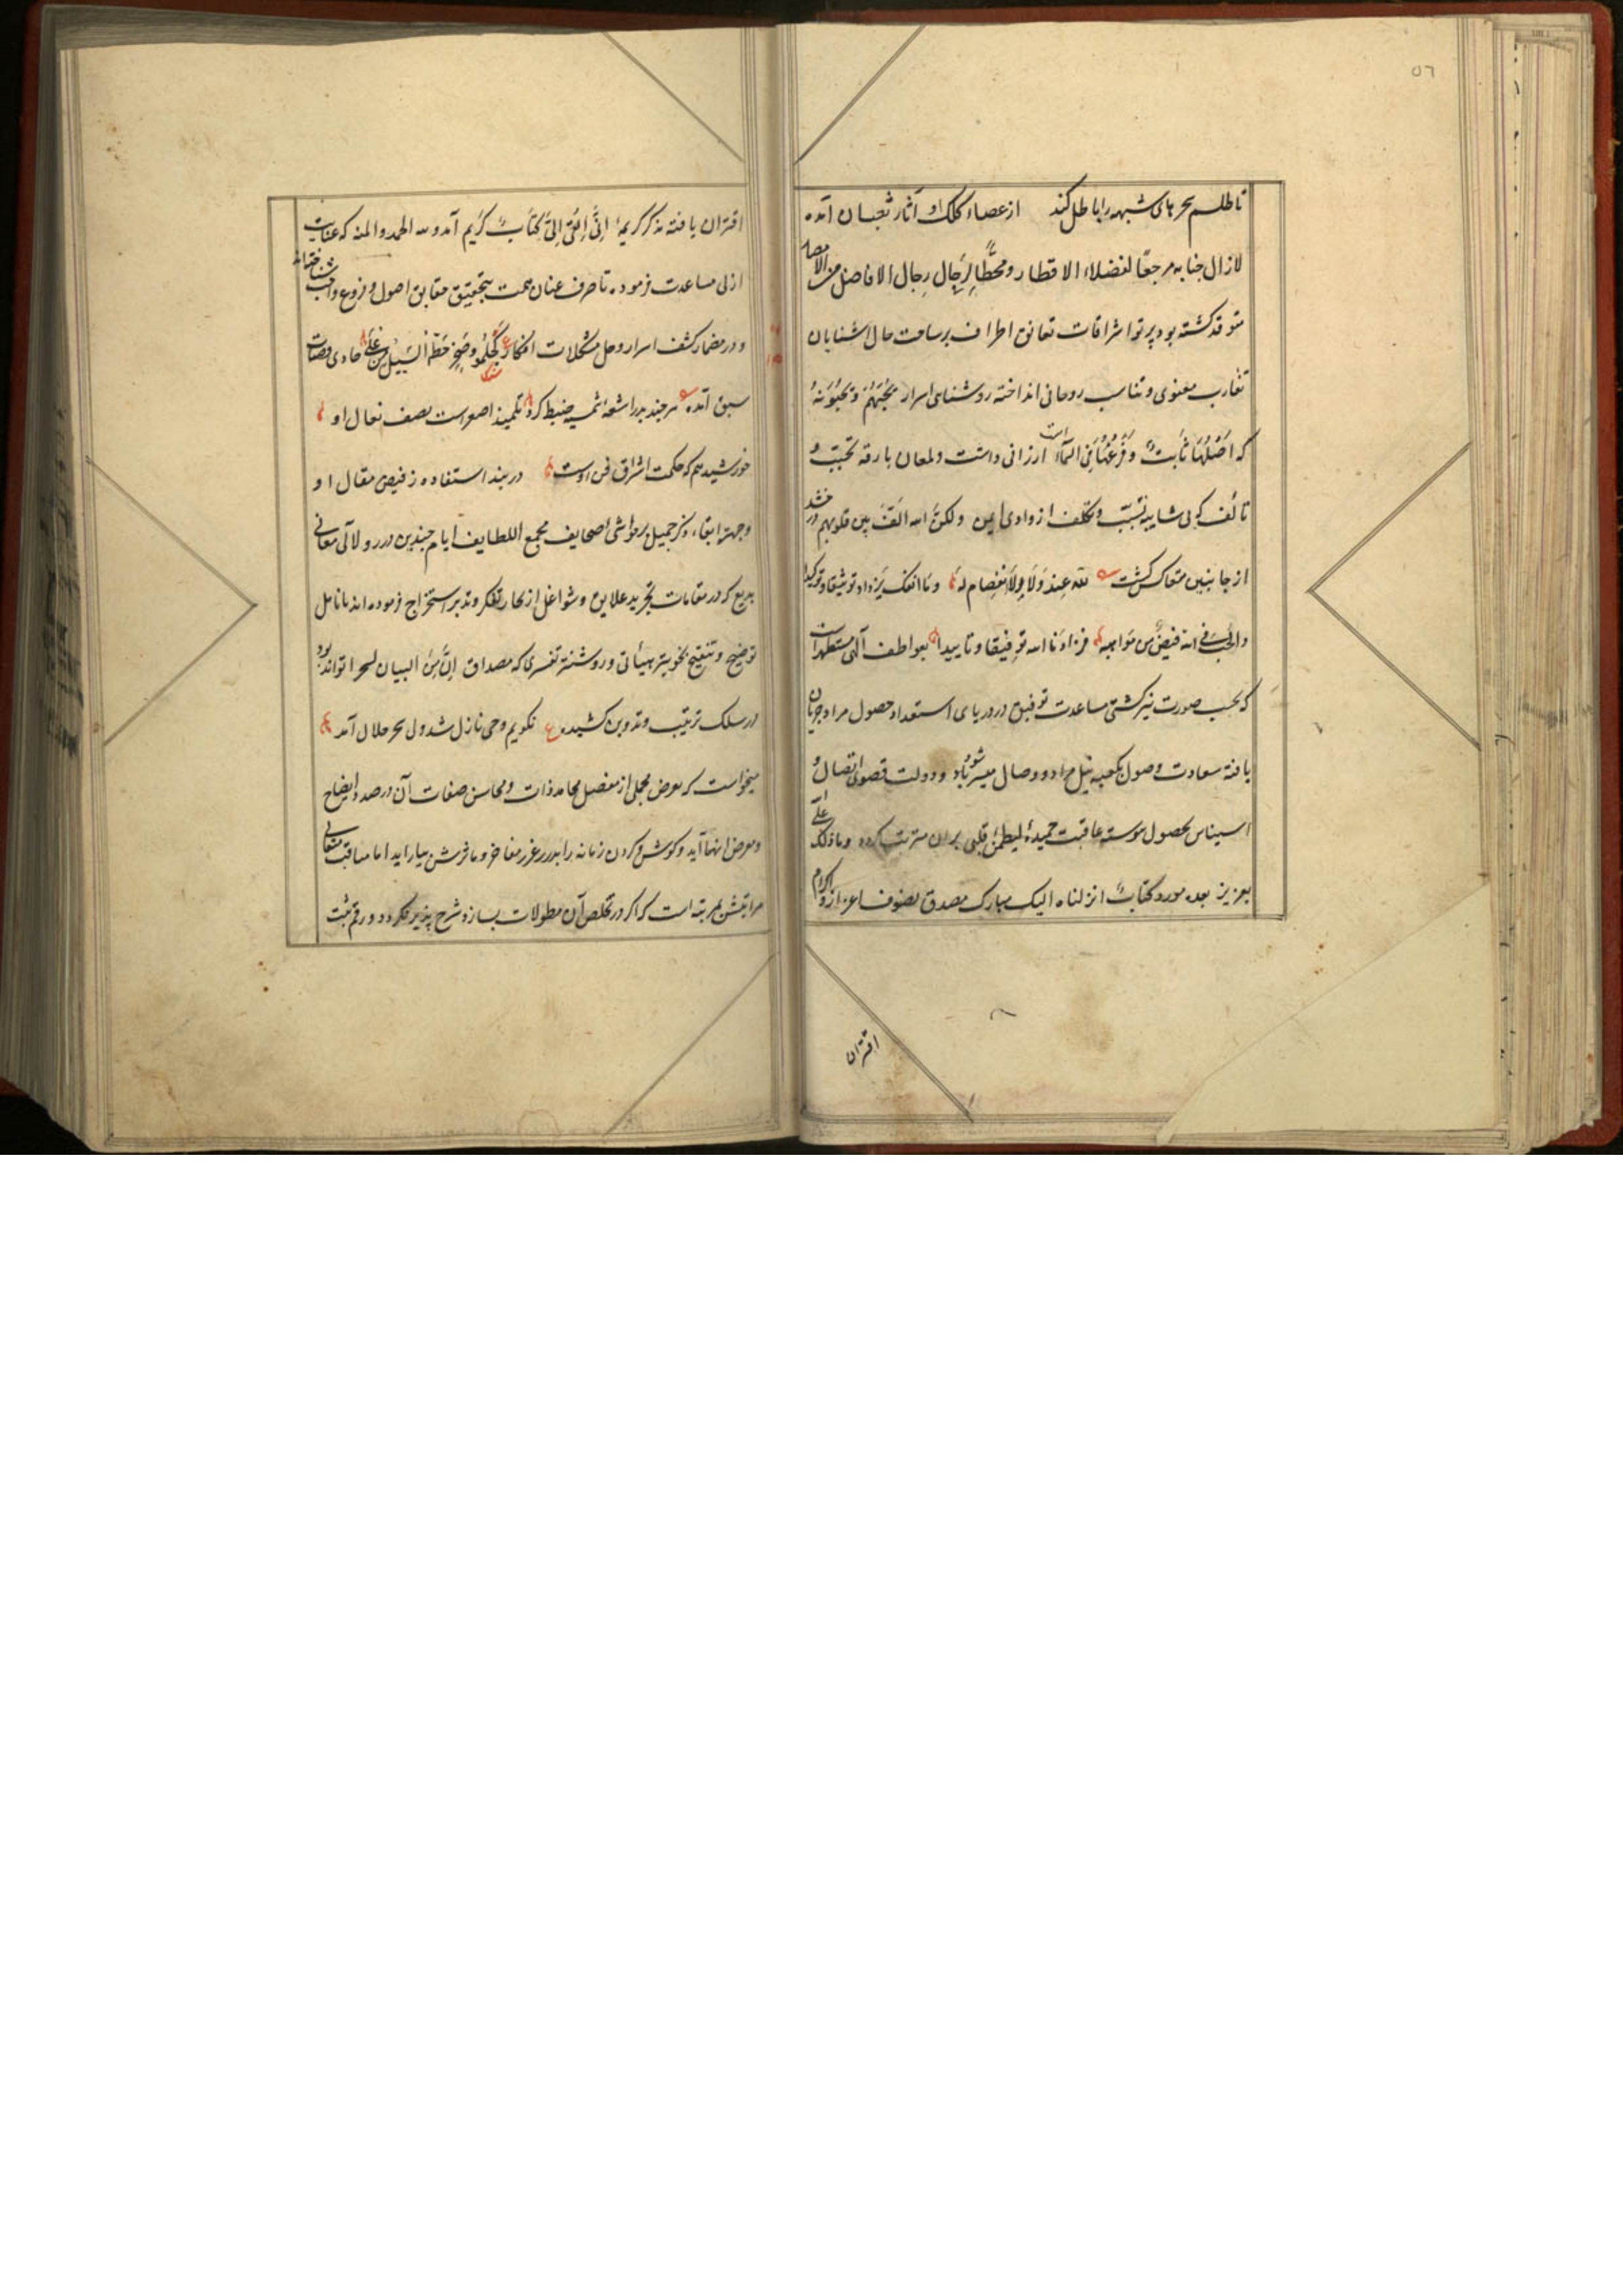 ٥٦
تا طلسم سحرهای شبهه را باطل کند از عصاء کلک او آثار ثعبان آمده
لازال جنابه مرجعا لفضلاء الاقطار ومحطّا لرحال رجال الافاضل من الامصار
متوقد کشته بود پرتو اشراقات تعانق اطراف بر ساحت حال آشنایان
تقارب معنوی و تناسب روحانی انداخته روشنای اسرار یحبّهم ویحبّونه
که اصلها ثابت وفرعها فی السّماء ارزانی داشت ولمعان بارقه تحبّب و
تألف که بی شایبه تسبّب وتکلف از وادی ایمن ولکنّ الله الّف بین قلوبهم در
از جانبین متعاکس کشت لله عند ولا انفصام له وما انفک یزداد توثیقا وتوکیدا
والحبّ فی الله فیض من مواهبه فزادنا الله توفیقا وتاییدا بعواطف آلهی مستظهر است
که بحسب صورت نیز کشتی مساعدت توفیق در دریای استعداد حصول مراد جریان
یافته سعادت وصول بکعبه نیل مراد ووصال میسر شود ودولت قصوی اتصال و
استیناس بحصول پیوسته عاقبت حمیدهٔ لیطمئن قلبی بران مترتب کردد وما ذلک علی الله
بعزیز بعده مورد کتاب انزلناه الیک مبارک مصدق بصنوف اعزاز واکرام
اقتران
اقتران یافته مذکر کریمهٔ انّی القی الیّ کتاب کریم آمد ولله الحمد والمنه که عنایت
ازلی مساعدت فرموده تا صرف عنان همت بتحقیق حقایق اصول وفروع
ودر مضمار کشف اسرار وحل مشکلات افکار کجلمود صخر حطّه السیل من علی حاوی قصبات
سبق آمده هرچند بدر اشعهٔ شمسیه ضبط کرد تلمیذ اصغر است بصف نعال او
خورشید هم که حکمت اشراق فن اوست در بند استفاده ز فیض مقال او
وجهة ابقاء ذکر جمیل بر حواشی صحایف مجمع اللطایف ایام چندین درر ولآلی معانی
بدیع که در مقامات تجرید علایق وشواغل از بحار تفکر وتدبر استخراج فرموده اند بانامل
توضیح وتنقیح بخوبتر هیأتی وروشنتر تفسری که مصداق انّ من البیان لسحرا تواند بود
در سلک ترتیب وتدوین کشیده نکویم وحی نازل شد ولی سحر حلال آمد
میخواست که بعرض مجملی از مفصل محامد ذات ومحاسن صفات آن در صدد ایضاح
ومعرض انها آید وکوش وکردن زمانه را بدرر غرر مفاخر ومآثرش بیاراید اما مناقب معالی
مراتبش بمرتبه است که اکر در تلخص آن مطولات بسازد شرح پذیر نکردد ورقم ثبت